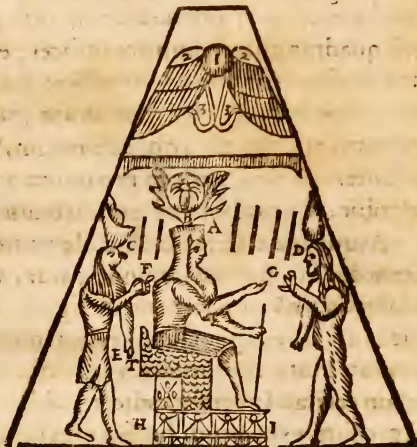 2 1 2
3 3
A
C D
F G
E
T
H I